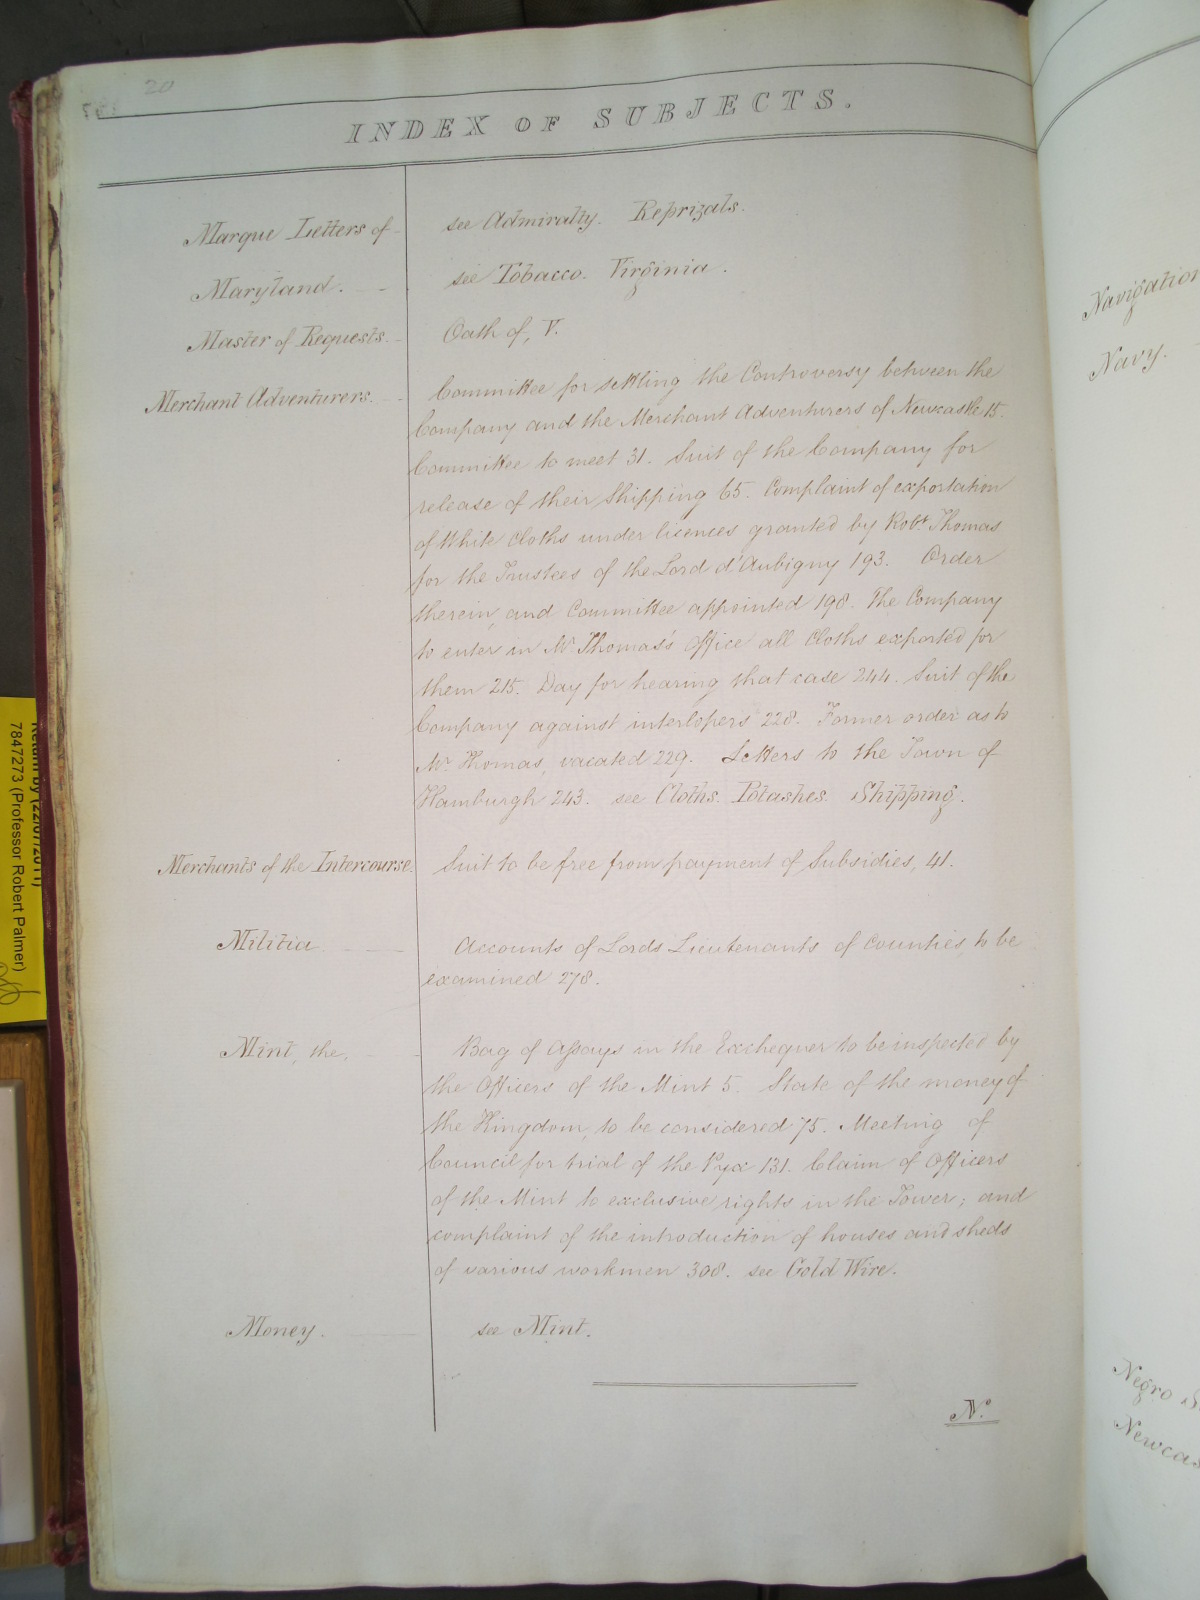 20
INDEX OF SUBJECTS.
Marque Letters of - see Admiralty. Reprizals.
Maryland. - see Tobacco. Virginia.
Master of Requests. - Oath of, V.
Merchant Adventurers. - Committee for settling the Controversy between the
Company and the Merchant Adventurers of Newcastle 15.
Committee to meet 31. Suit of the Company for
release of their Shipping 65. Complaint of exportation
of White Cloths under licences granted by Robt. Thomas
for the Trustees of the Lord d'Aubigny 193. Order
therein, and Committee appointed 198. The Company
to enter in Mr Thomas's Office all Cloths exported for
them 215. Day for hearing that case 244. Suit of the
Company against interlopers 228. Former order as to
Mr Thomas, vacated 229. Letters to the Town of
Hamburgh 243. see Cloths. Potashes. Shipping.
Merchants of the Intercourse. Suit to be free from payment of Subsidies, 41.
Militia Accounts of Lords Lieutenants of Counties, to be
examined 278.
Mint, the. - Bag of Assays in the Exchequer to be inspected by
the Officers of the Mint 5. State of the money of
the Kingdom, to be considered 75. Meeting of
Council for trial of the Pyx 131. Claim of Officers
of the Mint to exclusive rights in the Tower; and
complaint of the introduction of houses and sheds
of various workmen 308. see Gold Wire.
Money. see Mint.
N.
Navigation
Navy.
Negro S
Newcas
Return by (22/07/2011)
7847273 (Professor Robert Palmer)